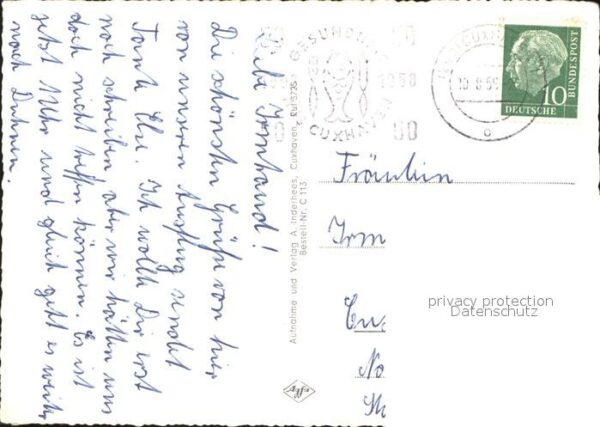 Liebe Irmtraud!
Die schönsten Grüße von hier
von unserem Ausflug sendet
Tante Else. Ich wollte Dir erst
noch schreiben aber wir hätten uns
doch nicht treffen können. Es ist
jetzt 11 Uhr und gleich geht es weiter
nach Duhnen.
Aufnahme und Verlag A. Inderhees, Cuxhaven, Ruf 5735
Bestell-Nr. C 113
Agfa
GESUNDUNG
CUXHAVEN
1958
10
DEUTSCHE
BUNDESPOST
Fräulein
Irm
No
privacy protection
Datenschutz